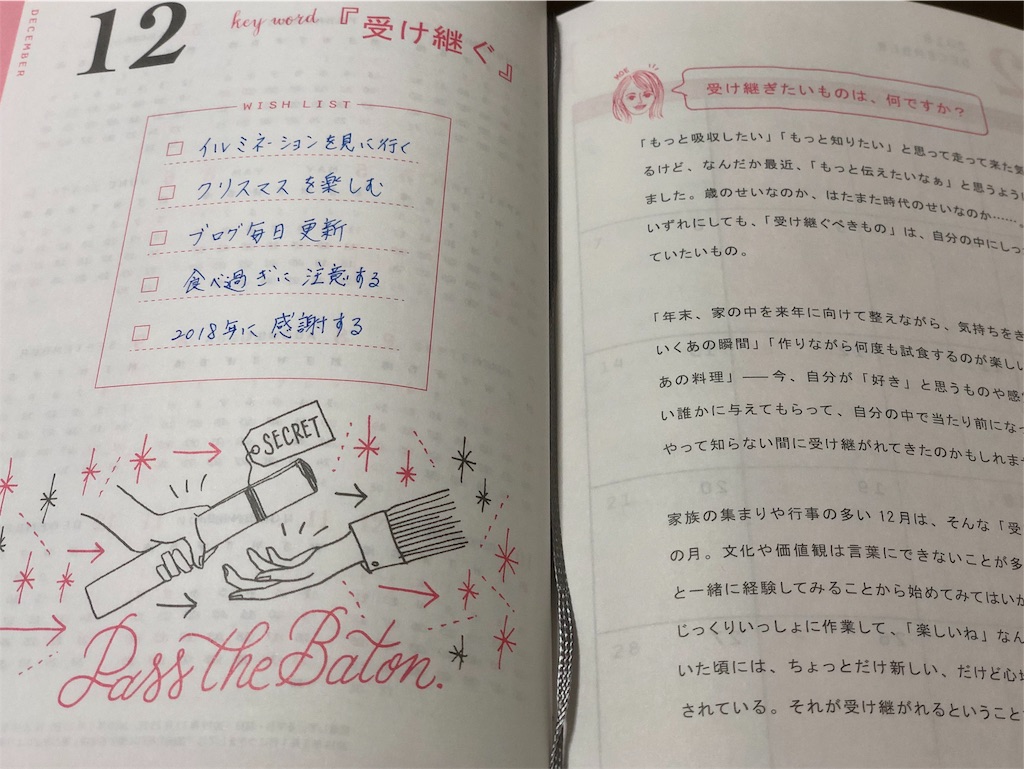 DECEMBER
12
key word 『受け継ぐ』
WISH LIST
イルミネーションを見に行く
クリスマスを楽しむ
ブログ毎日更新
食べ過ぎに注意する
2018年に感謝する
SECRET
Pass the Baton.
MOE
受け継ぎたいものは、何ですか？
「もっと吸収したい」「もっと知りたい」と思って走って来た気
るけど、なんだか最近、「もっと伝えたいなぁ」と思うよう
ました。歳のせいなのか、はたまた時代のせいなのか……。
いずれにしても、「受け継ぐべきもの」は、自分の中にしっ
ていたいもの。
「年末、家の中を来年に向けて整えながら、気持ちをき
いくあの瞬間」「作りながら何度も試食するのが楽し
あの料理」――今、自分が「好き」と思うものや感
い誰かに与えてもらって、自分の中で当たり前にな
やって知らない間に受け継がれてきたのかもしれま
家族の集まりや行事の多い12月は、そんな「受
の月。文化や価値観は言葉にできないことが多
と一緒に経験してみることから始めてみてはいか
じっくりいっしょに作業して、「楽しいね」なん
いた頃には、ちょっとだけ新しい、だけど心地
されている。それが受け継がれるということ